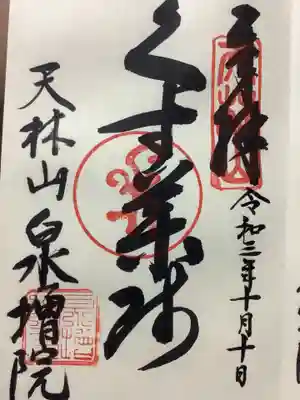 奉拝
令和三年十月十日
くす薬师
天林山 泉増院